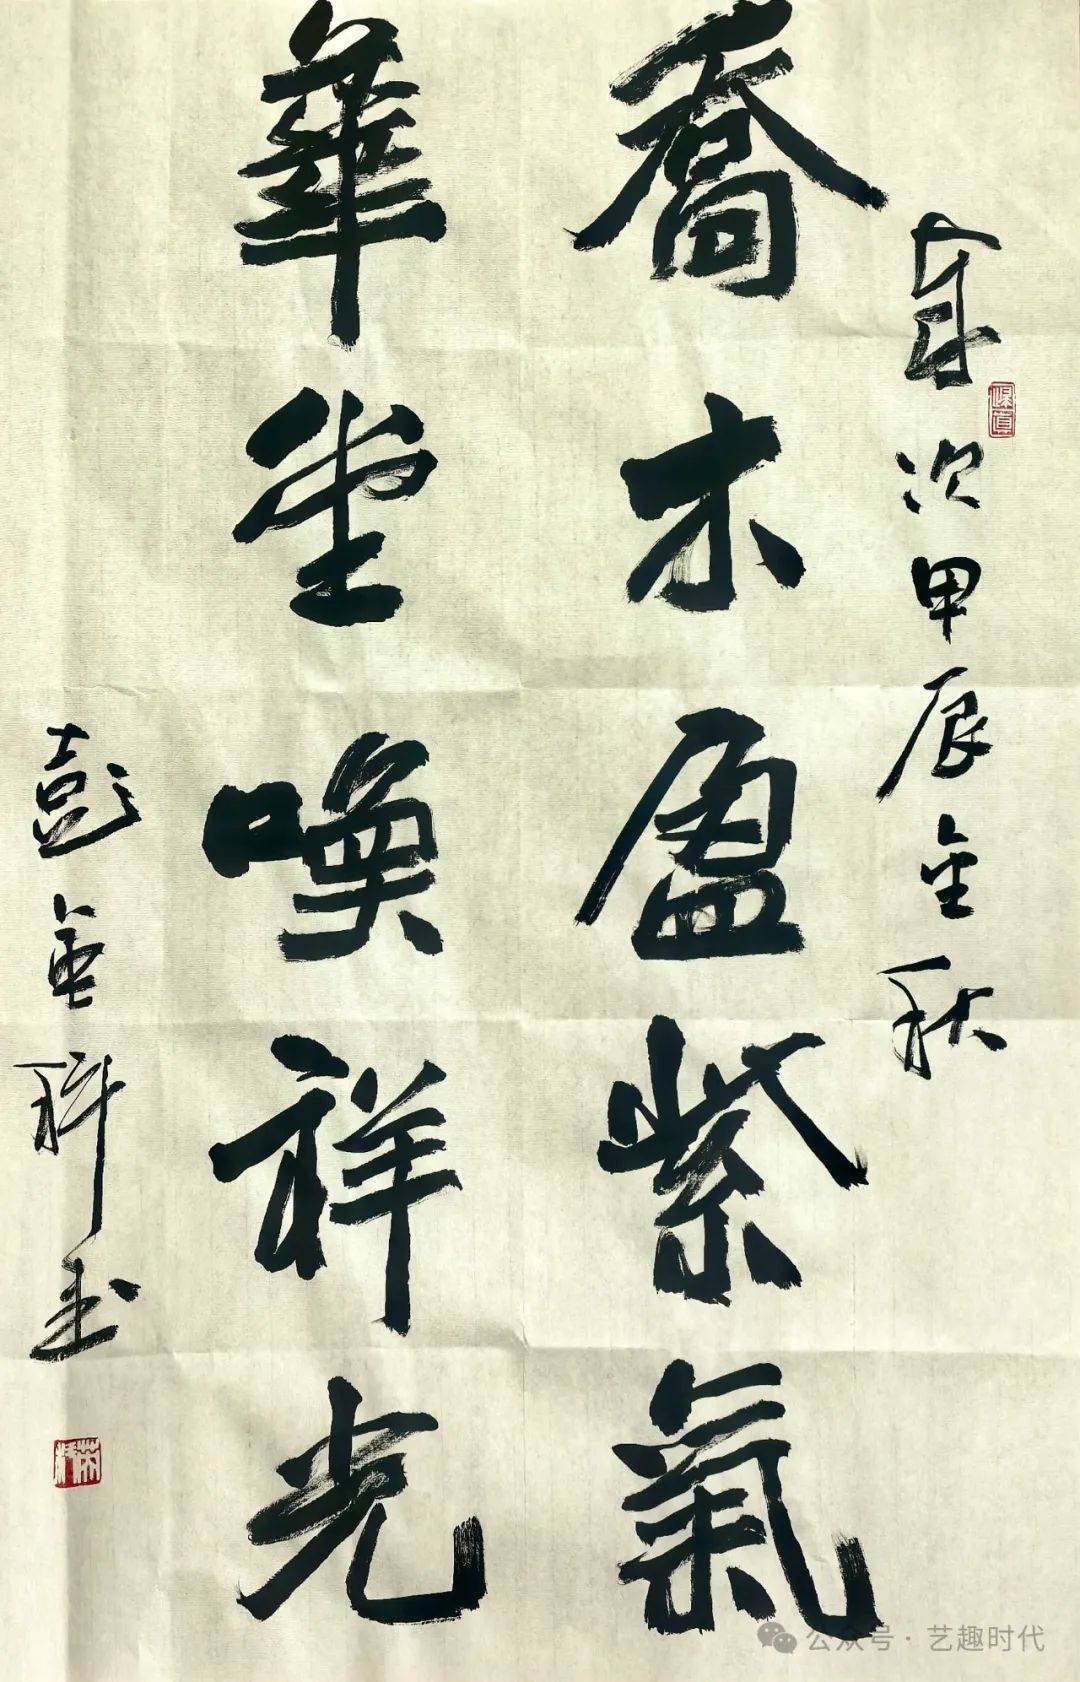 歲次甲辰金秋
保真
喬木盈紫氣
華堂喚祥光
彭科书
公众号 · 艺趣时代